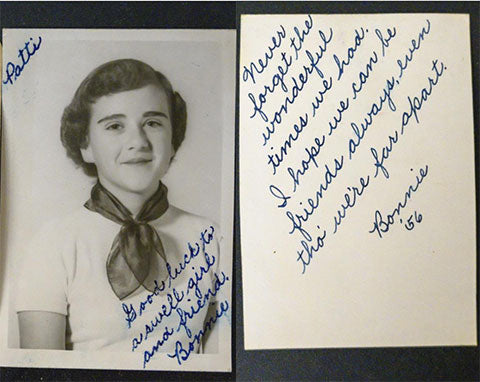 Patti
Good luck to
a swell girl
and friend.
Bonnie
Never
forget the
wonderful
times we had.
I hope we can be
friends always, even
tho' we're far apart.
Bonnie
'56